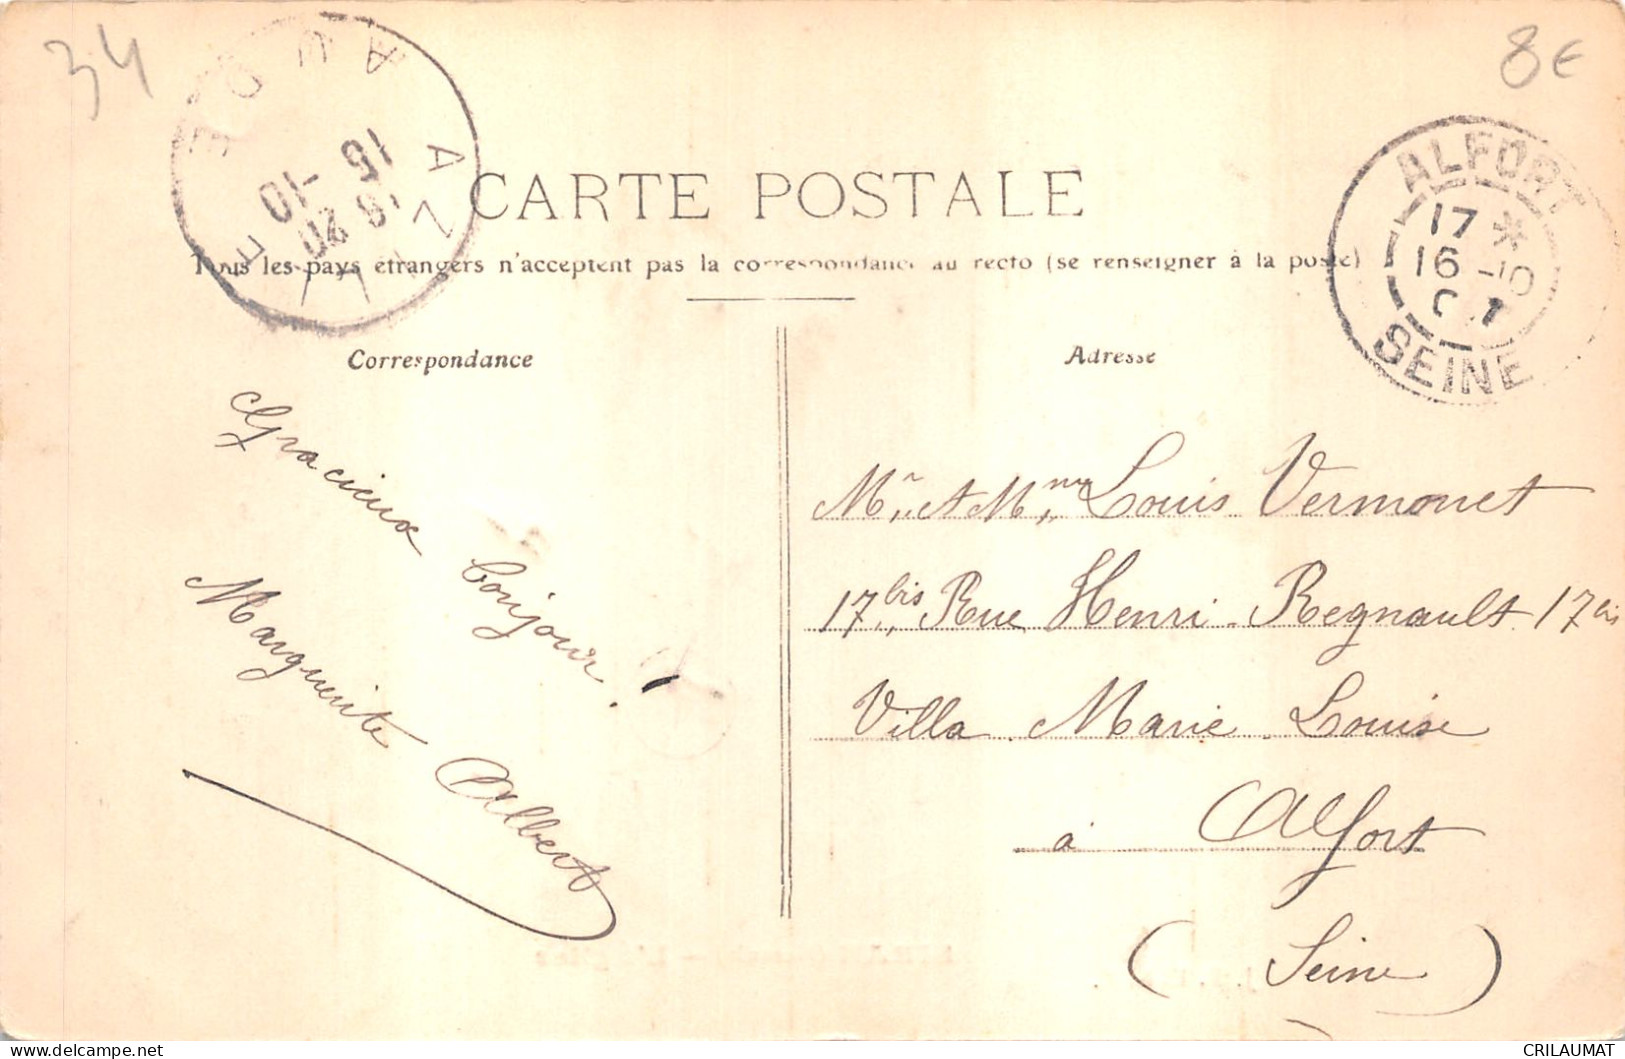 34
8€
15 -10
CARTE POSTALE
ALFORT
17 *
16 -10
SEINE
Tous les pays étrangers n'acceptent pas la correspondance au recto (se renseigner à la poste)
Correspondance
Gracieux bonjour !
Marguerite Albert
Adresse
Mr et Mme Louis Vermonet
17bis Rue Henri Regnault 17bis
Villa Marie Louise
à Alfort
(Seine)
CRILAUMAT